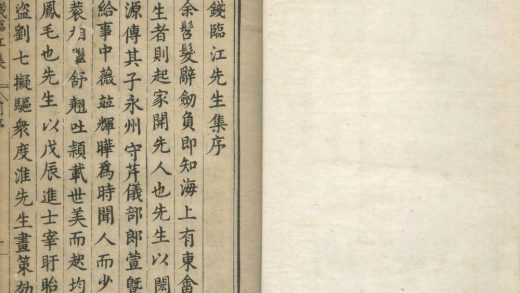 錢臨江先生集序
余髫髮辭劒負即知海上有東畬
生者則起家開先人也先生以閎
源傳其子永州守芹儀部郎萱曁
給事中薇竝輝曄爲時聞人而少
裳繼舒翹吐頴載世美而起均
鳳毛也先生以戊辰進士宰盱眙
盜劉七擬驅衆度淮先生畫策劾
臨江集 序